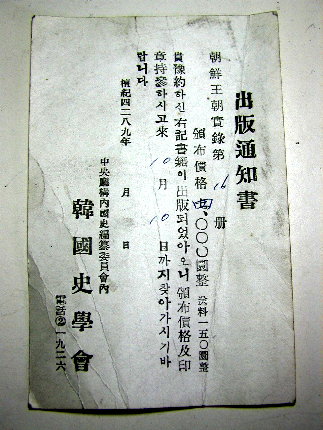 出版通知書
朝鮮王朝實錄第 16 册
頒布價格 四、〇〇〇圜整 送料一五〇圜整
貴豫約하신右記書籍이出版되었아오니頒布價格及印
章持參하시고來 10 月 10 日까지찾아가시기바
랍니다
檀紀四二八九年 月 日
中央廳構內國史編纂委員會內
韓國史學會
電話②一九二六